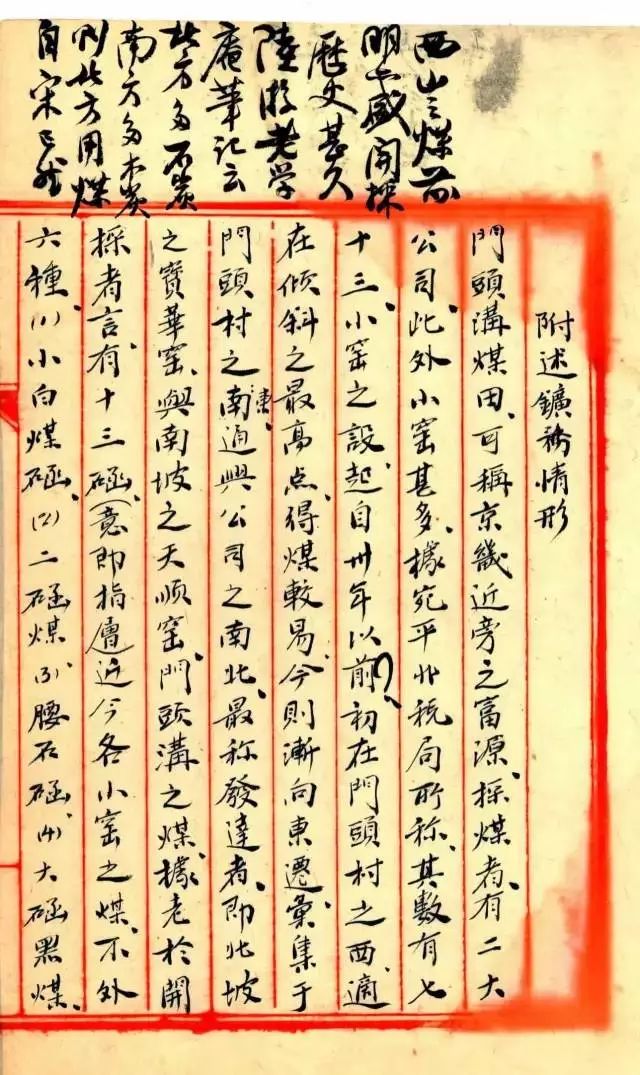 西山之煤前
明盛開採
歷史甚久
陸游老学
庵筆記云
北方多石炭
南方多木炭
則北方用煤
自宋已然
附述鑛務情形
門頭溝煤田、可稱京畿近旁之富源、採煤者、有二大
公司、此外小窰甚多、據宛平北税局所称、其數有七
十三、小窰之設、起自卅年以前?、初在門頭村之西、適
在傾斜之最高点、得煤較易、今則漸向東遷、彙集于
門頭村之南、通興公司之南北、最称發達者、即北坡
東
之寶華窰、與南坡之天順窰、門頭溝之煤、據老於開
採者言、有十三𥐻、(意即指層)近今各小窰之煤、不外
六種、(1)小白煤𥐻、(2)二𥐻煤、(3)腰石𥐻、(4)大𥐻黑煤、